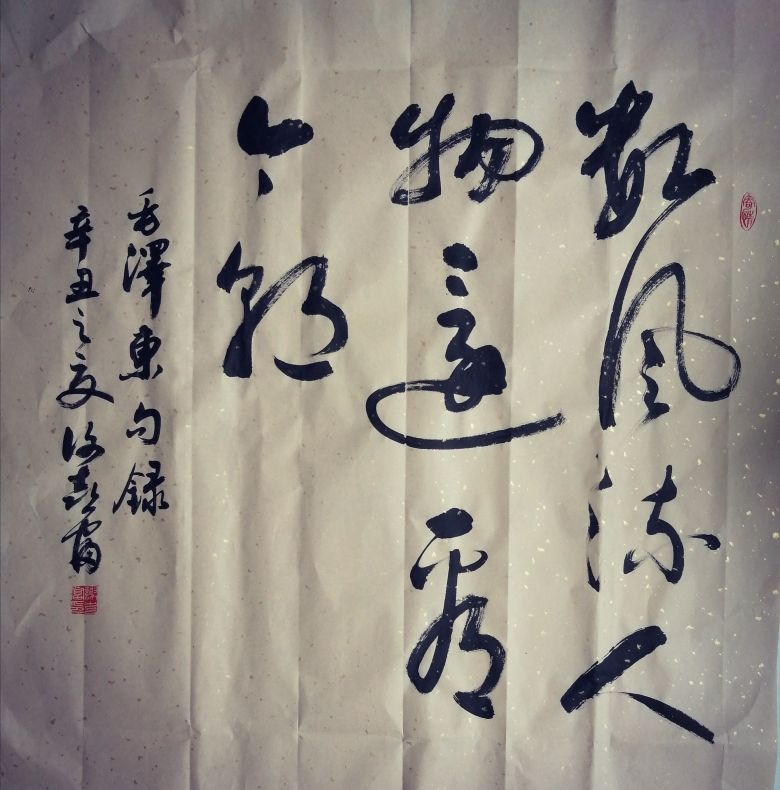 数风流人
物还看
今朝
毛澤东句録
辛丑之夏